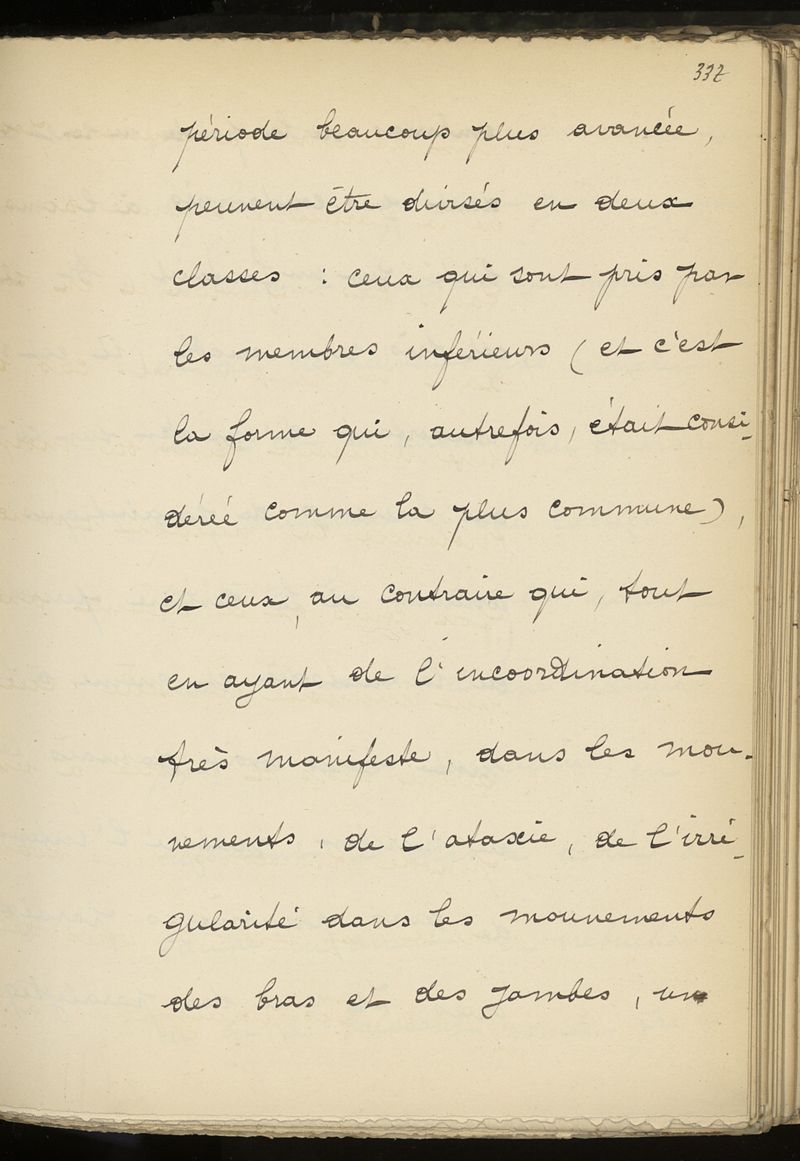 337
période beaucoup plus avancée,
peuvent être divisés en deux
classes : ceux qui sont pris par
les membres inférieurs (et c'est
la forme qui, autrefois, était consi-
dérée comme la plus commune),
et ceux, au contraire qui, tout
en ayant de l'incoordination
très manifeste, dans les mou-
vements, de l'ataxie, de l'irré-
gularité dans les mouvements
des bras et des jambes, un